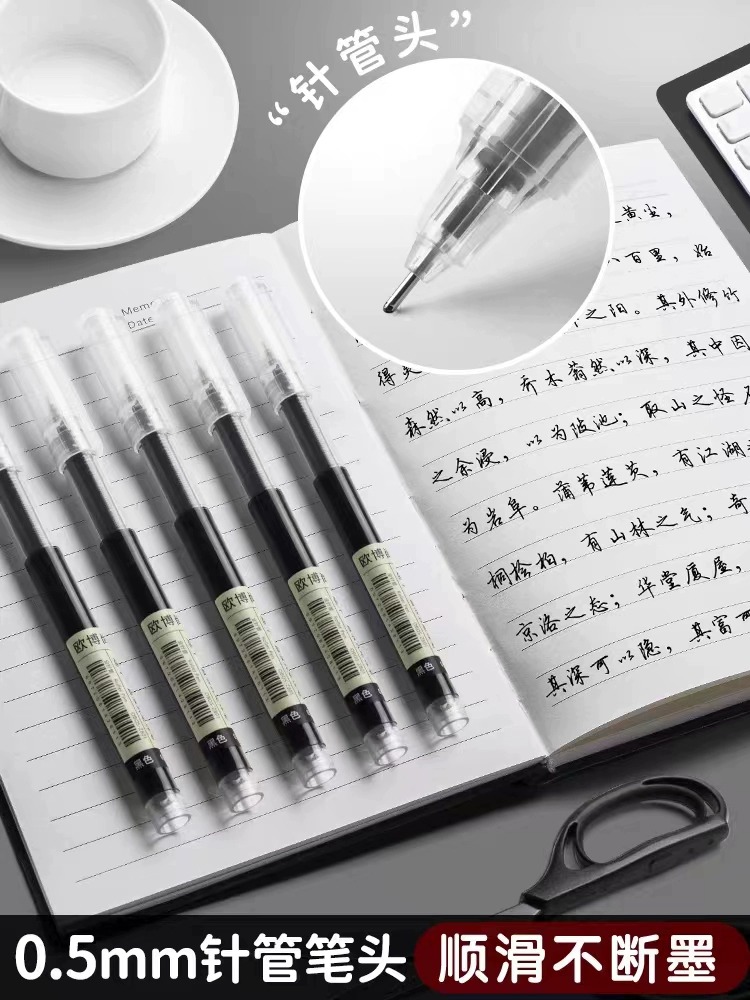 “针管头”
Memo
Date
黄尘，
八百里，始
得灵
之阳。其外修竹
森然以高，乔木蓊然以深，其中因
之余浸，以为陂池；取山之怪石
为岩阜。蒲苇莲芡，有江湖
桐桧柏，有山林之气；奇
京洛之态；华堂厦屋，
其深可以隐，其富可
欧博
欧博
欧博
欧博
欧博
黑色
黑色
黑色
黑色
0.5mm针管笔头
顺滑不断墨